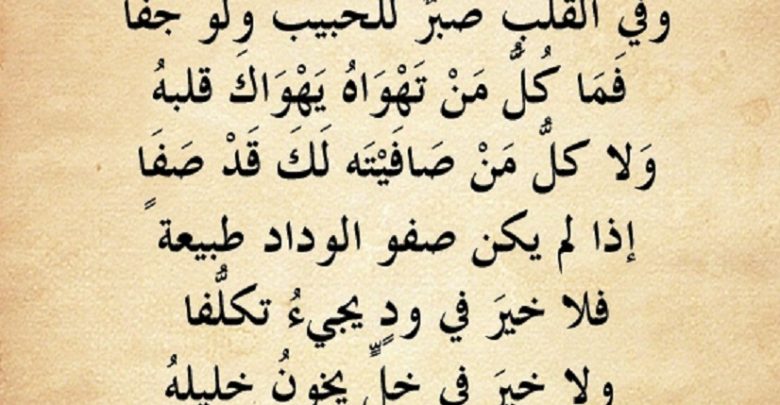 وفي القلب صبرٌ للحبيب ولو جفا
فَمَا كُلُّ مَنْ تَهْوَاهُ يَهْوَاكَ قلبهُ
وَلا كلُّ مَنْ صَافَيْتَه لَكَ قَدْ صَفَا
إذا لم يكن صفو الوداد طبيعةً
فلا خيرَ في ودٍ يجيءُ تكلُّفا
ولا خيرَ في خلٍّ يخونُ خليلهُ